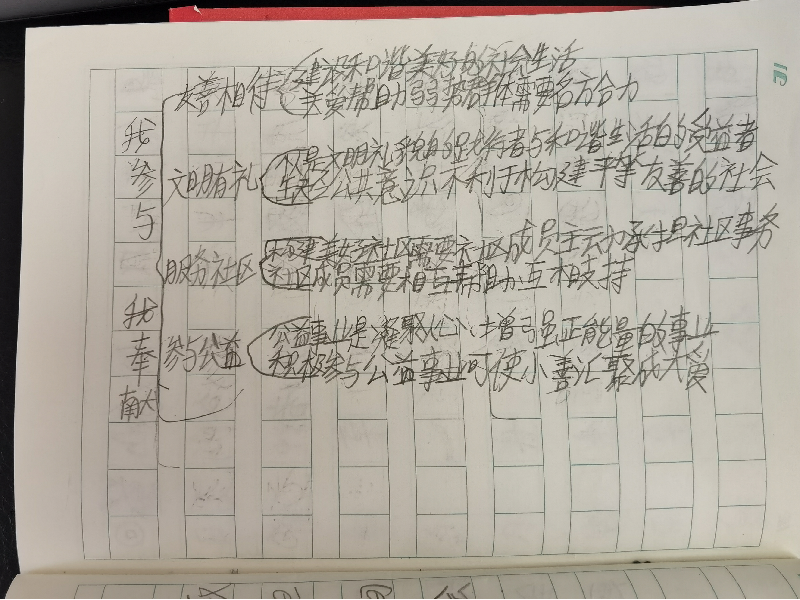 我参与 我奉献
友善相待
建设和谐美好的社会生活
关爱帮助弱势群体需要各方合力
文明有礼
人是文明礼貌的践行者与和谐生活的受益者
缺乏公共意识不利于构建平等友善的社会
服务社区
构建美好社区需要社区成员主动承担社区事务
社区成员需要相互帮助互相支持
参与公益
公益事业是凝聚人心、增强正能量的事业
积极参与公益事业可使小善汇聚成大爱